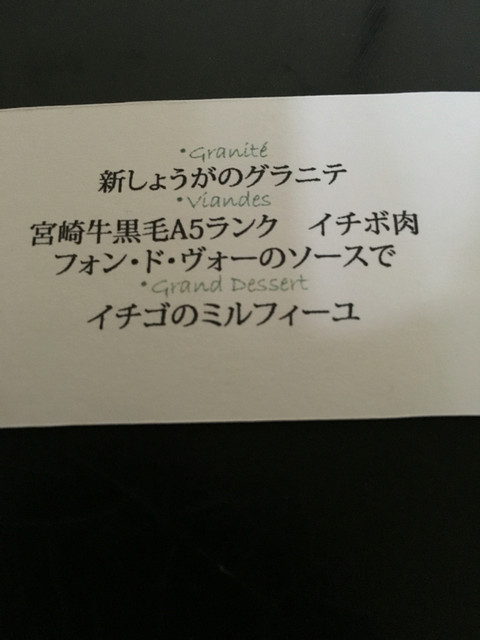 ・Granité
新しょうがのグラニテ
・Viandes
宮崎牛黒毛A5ランク　イチボ肉
フォン・ド・ヴォーのソースで
・Grand Dessert
イチゴのミルフィーユ